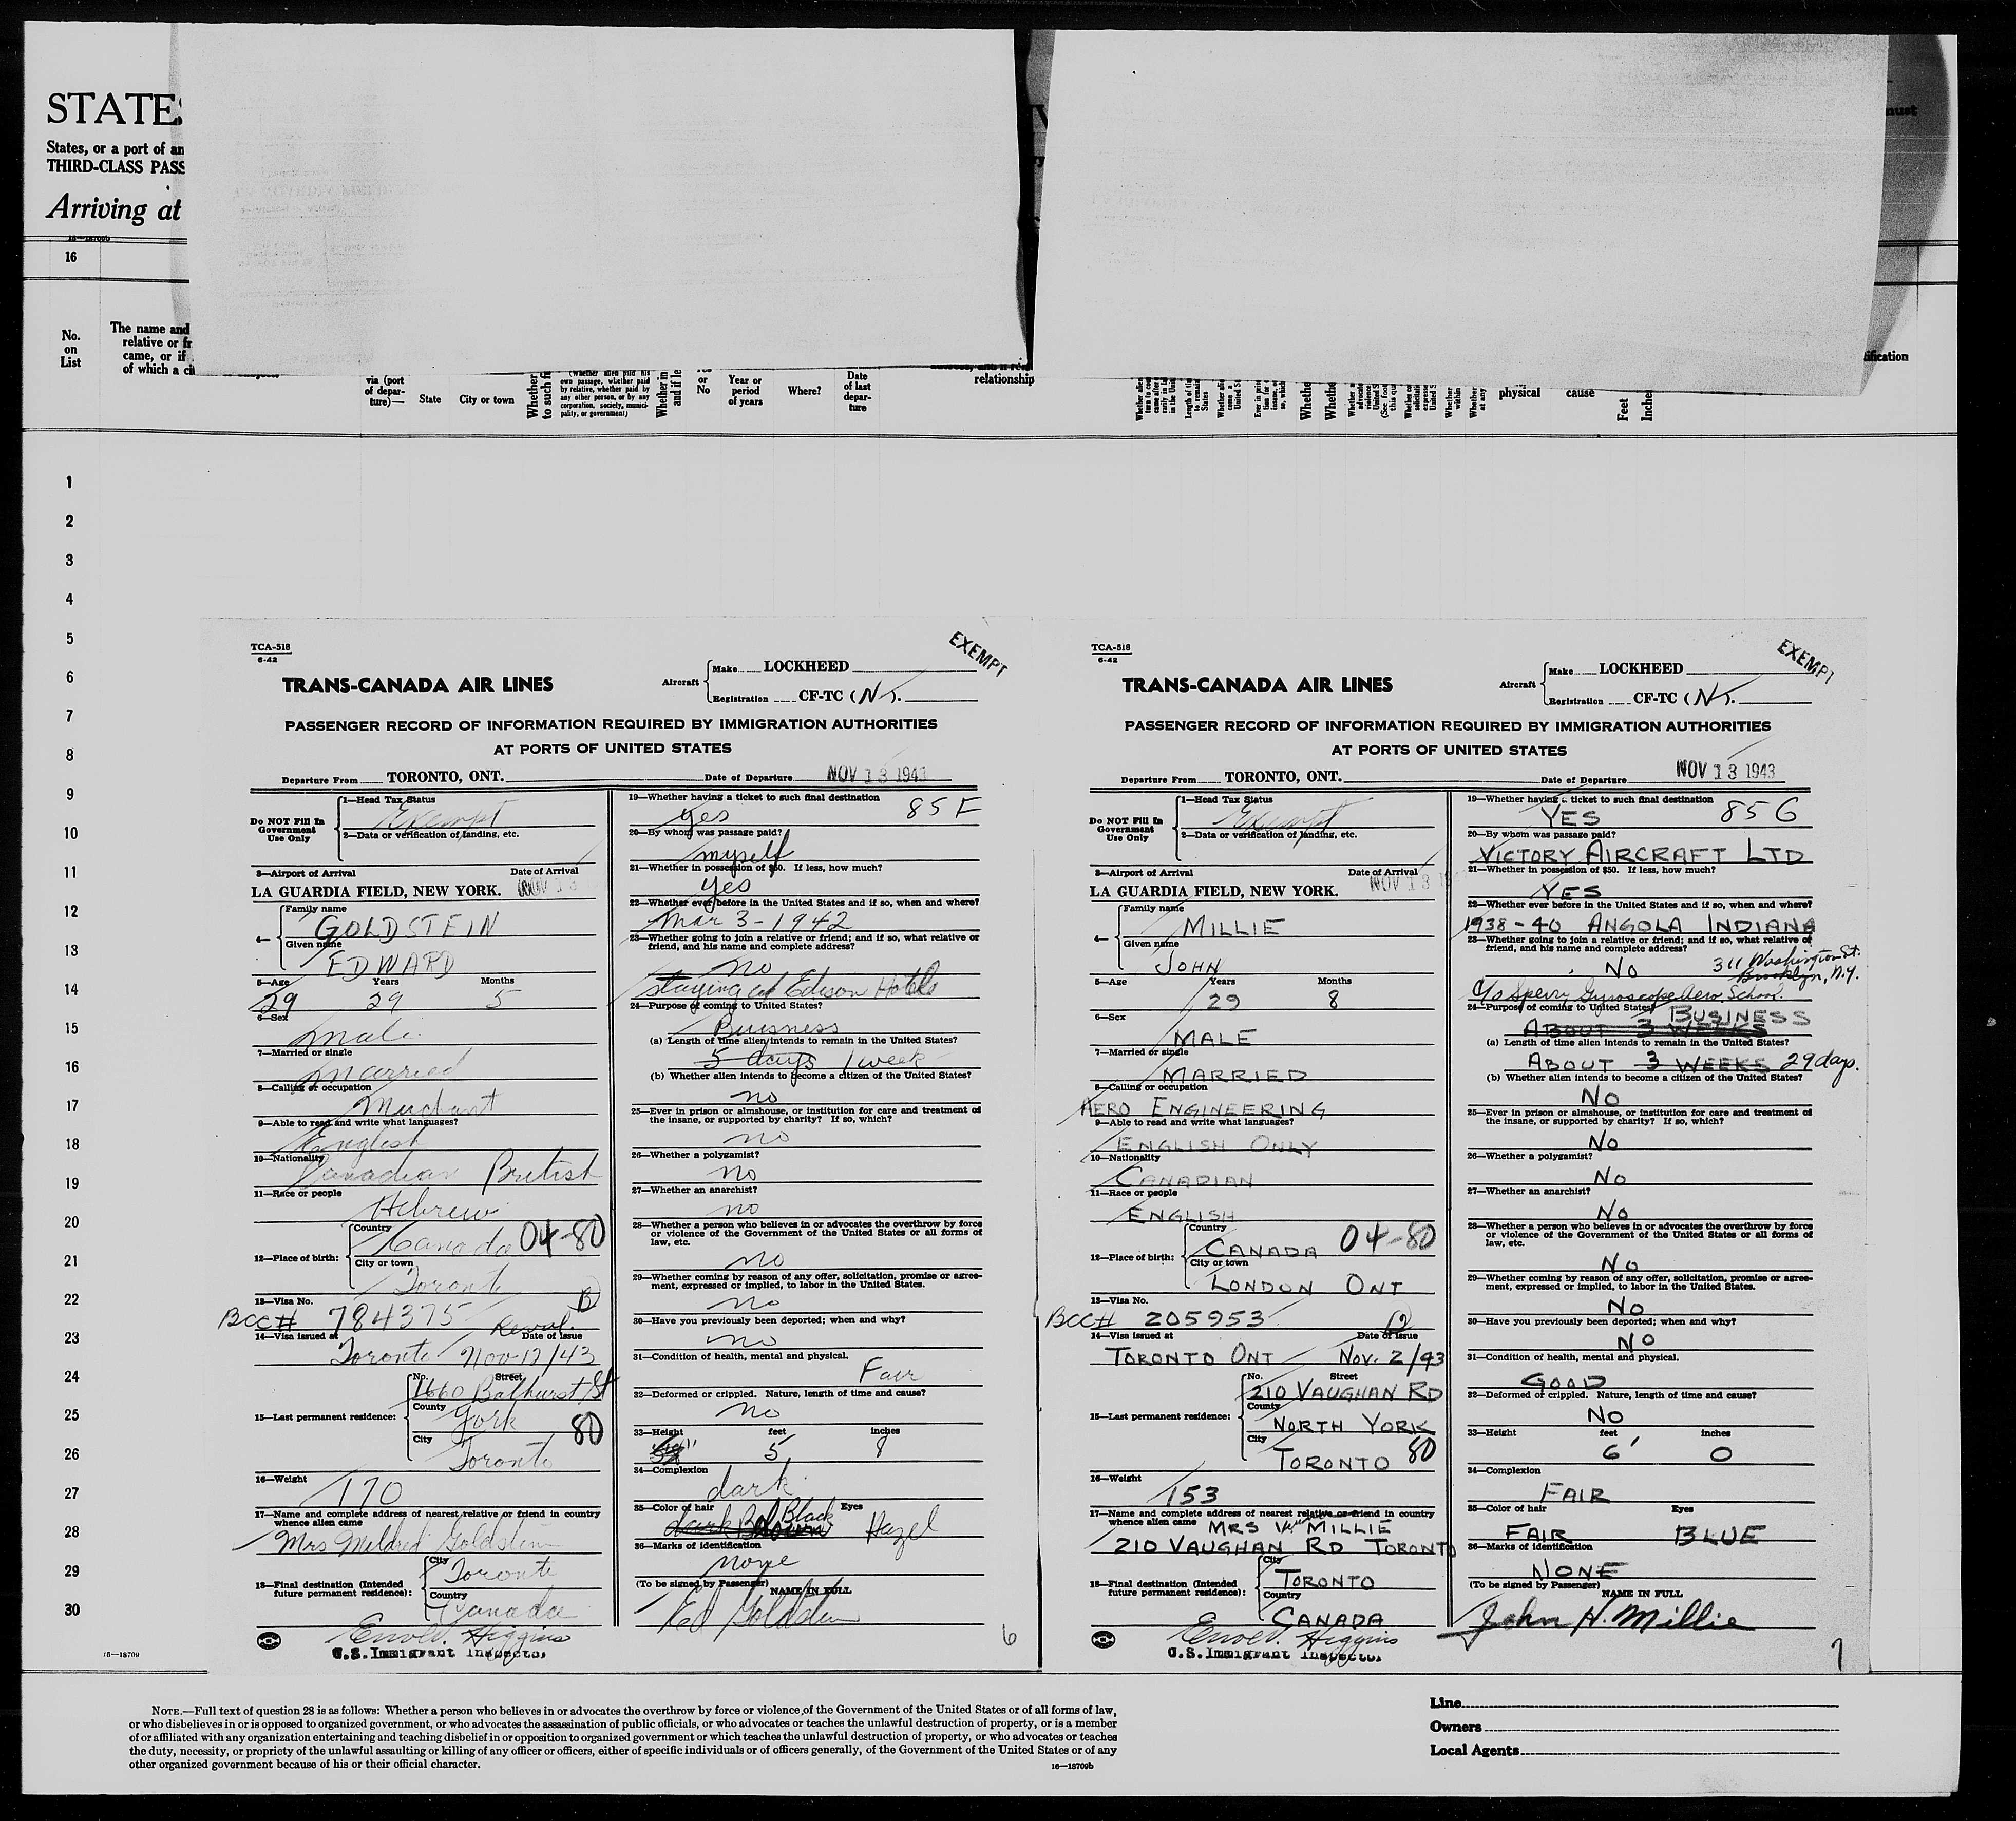 STATES
States, or a port of an
THIRD-CLASS PASS
Arriving at
16—18709b
16
No.
on
List
The name and
relative or fr
came, or if
of which a ci
via (port
of depar-
ture)—
State
City or town
Whether
to such fi
(Whether alien paid his
own passage, whether paid
by relative, whether paid by
any other person, or by any
corporation, society, munici-
pality, or government)
Whether in
and if le
or
No
Year or
period
of years
Where?
Date
of last
depar-
ture
relationship
physical
cause
Feet
Inche
must
ification
1
2
3
4
5
6
7
8
9
10
11
12
13
14
15
16
17
18
19
20
21
22
23
24
25
26
27
28
29
30
16—18709
TCA-518
6-42
EXEMPT
TRANS-CANADA AIR LINES
Aircraft
Make LOCKHEED
Registration CF-TC (N).
PASSENGER RECORD OF INFORMATION REQUIRED BY IMMIGRATION AUTHORITIES
AT PORTS OF UNITED STATES
Departure From TORONTO, ONT. Date of Departure NOV 13 1943
Do NOT Fill In
Government
Use Only
1—Head Tax Status
Exempt
2—Data or verification of landing, etc.
3—Airport of Arrival Date of Arrival
LA GUARDIA FIELD, NEW YORK. NOV 13
4—
Family name
GOLDSTEIN
Given name
EDWARD
5—Age Years Months
29 29 5
6—Sex
male
7—Married or single
married
8—Calling or occupation
Merchant
9—Able to read and write what languages?
English
10—Nationality
Canadian British
11—Race or people
Hebrew
12—Place of birth:
Country
Canada 04-80
City or town
Toronto
13—Visa No. B
BCC# 784375 Reval.
14—Visa issued at Date of Issue
Toronto Nov-12/43
15—Last permanent residence:
No. Street
1660 Bathurst St
County
York 80
City
Toronto
16—Weight
170
17—Name and complete address of nearest relative or friend in country
whence alien came
Mrs Mildred Goldstein
18—Final destination (Intended
future permanent residence):
City
Toronto
Country
Canada
Higgins
U.S. Immigrant Inspector
19—Whether having a ticket to such final destination
yes 85 F
20—By whom was passage paid?
myself
21—Whether in possession of $50. If less, how much?
yes
22—Whether ever before in the United States and if so, when and where?
Mar 3-1942
23—Whether going to join a relative or friend; and if so, what relative or
friend, and his name and complete address?
no
staying at Edison Hotels
24—Purpose of coming to United States?
Buisness
(a) Length of time alien intends to remain in the United States?
5 days 1 week
(b) Whether alien intends to become a citizen of the United States?
no
25—Ever in prison or almshouse, or institution for care and treatment of
the insane, or supported by charity? If so, which?
no
26—Whether a polygamist?
no
27—Whether an anarchist?
no
28—Whether a person who believes in or advocates the overthrow by force
or violence of the Government of the United States or all forms of
law, etc.
no
29—Whether coming by reason of any offer, solicitation, promise or agree-
ment, expressed or implied, to labor in the United States.
no
30—Have you previously been deported; when and why?
no
31—Condition of health, mental and physical.
Fair
32—Deformed or crippled. Nature, length of time and cause?
no
33—Height feet inches
5 8
34—Complexion
dark
35—Color of hair Eyes
dark Brown Black Hazel
36—Marks of identification
none
(To be signed by Passenger) NAME IN FULL
Ed Goldstein
6
TCA-518
6-42
EXEMPT
TRANS-CANADA AIR LINES
Aircraft
Make LOCKHEED
Registration CF-TC (N).
PASSENGER RECORD OF INFORMATION REQUIRED BY IMMIGRATION AUTHORITIES
AT PORTS OF UNITED STATES
Departure From TORONTO, ONT. Date of Departure NOV 13 1943
Do NOT Fill In
Government
Use Only
1—Head Tax Status
Exempt
2—Data or verification of landing, etc.
3—Airport of Arrival Date of Arrival
LA GUARDIA FIELD, NEW YORK. NOV 13
4—
Family name
MILLIE
Given name
JOHN
5—Age Years Months
29 8
6—Sex
MALE
7—Married or single
MARRIED
8—Calling or occupation
AERO ENGINEERING
9—Able to read and write what languages?
ENGLISH ONLY
10—Nationality
CANADIAN
11—Race or people
ENGLISH
12—Place of birth:
Country
CANADA 04-80
City or town
LONDON ONT
13—Visa No.
BCC# 205953
14—Visa issued at Date of Issue
TORONTO ONT Nov. 2/43
15—Last permanent residence:
No. Street
210 VAUGHAN RD
County
NORTH YORK
City
TORONTO 80
16—Weight
153
17—Name and complete address of nearest relative or friend in country
whence alien came MRS MILLIE
210 VAUGHAN RD TORONTO
18—Final destination (Intended
future permanent residence):
City
TORONTO
Country
CANADA
Higgins
U.S. Immigrant Inspector
19—Whether having a ticket to such final destination
YES 85 G
20—By whom was passage paid?
VICTORY AIRCRAFT LTD
21—Whether in possession of $50. If less, how much?
YES
22—Whether ever before in the United States and if so, when and where?
1938-40 ANGOLA INDIANA
23—Whether going to join a relative or friend; and if so, what relative or
friend, and his name and complete address?
NO 311 Washington St.
Brooklyn, N.Y.
c/o Sperry Gyroscope Aero School.
24—Purpose of coming to United States? BUSINESS
ABOUT 3 WEEKS
(a) Length of time alien intends to remain in the United States?
ABOUT 3 WEEKS 29 days.
(b) Whether alien intends to become a citizen of the United States?
NO
25—Ever in prison or almshouse, or institution for care and treatment of
the insane, or supported by charity? If so, which?
NO
26—Whether a polygamist?
NO
27—Whether an anarchist?
NO
28—Whether a person who believes in or advocates the overthrow by force
or violence of the Government of the United States or all forms of
law, etc.
NO
29—Whether coming by reason of any offer, solicitation, promise or agree-
ment, expressed or implied, to labor in the United States.
NO
30—Have you previously been deported; when and why?
NO
31—Condition of health, mental and physical.
GOOD
32—Deformed or crippled. Nature, length of time and cause?
NO
33—Height feet inches
6' 0
34—Complexion
FAIR
35—Color of hair Eyes
FAIR BLUE
36—Marks of identification
NONE
(To be signed by Passenger) NAME IN FULL
John H. Millie
7
NOTE.—Full text of question 28 is as follows: Whether a person who believes in or advocates the overthrow by force or violence of the Government of the United States or of all forms of law,
or who disbelieves in or is opposed to organized government, or who advocates the assassination of public officials, or who advocates or teaches the unlawful destruction of property, or is a member
of or affiliated with any organization entertaining and teaching disbelief in or opposition to organized government or which teaches the unlawful destruction of property, or who advocates or teaches
the duty, necessity, or propriety of the unlawful assaulting or killing of any officer or officers, either of specific individuals or of officers generally, of the Government of the United States or of any
other organized government because of his or their official character.
16—18709b
Line
Owners
Local Agents